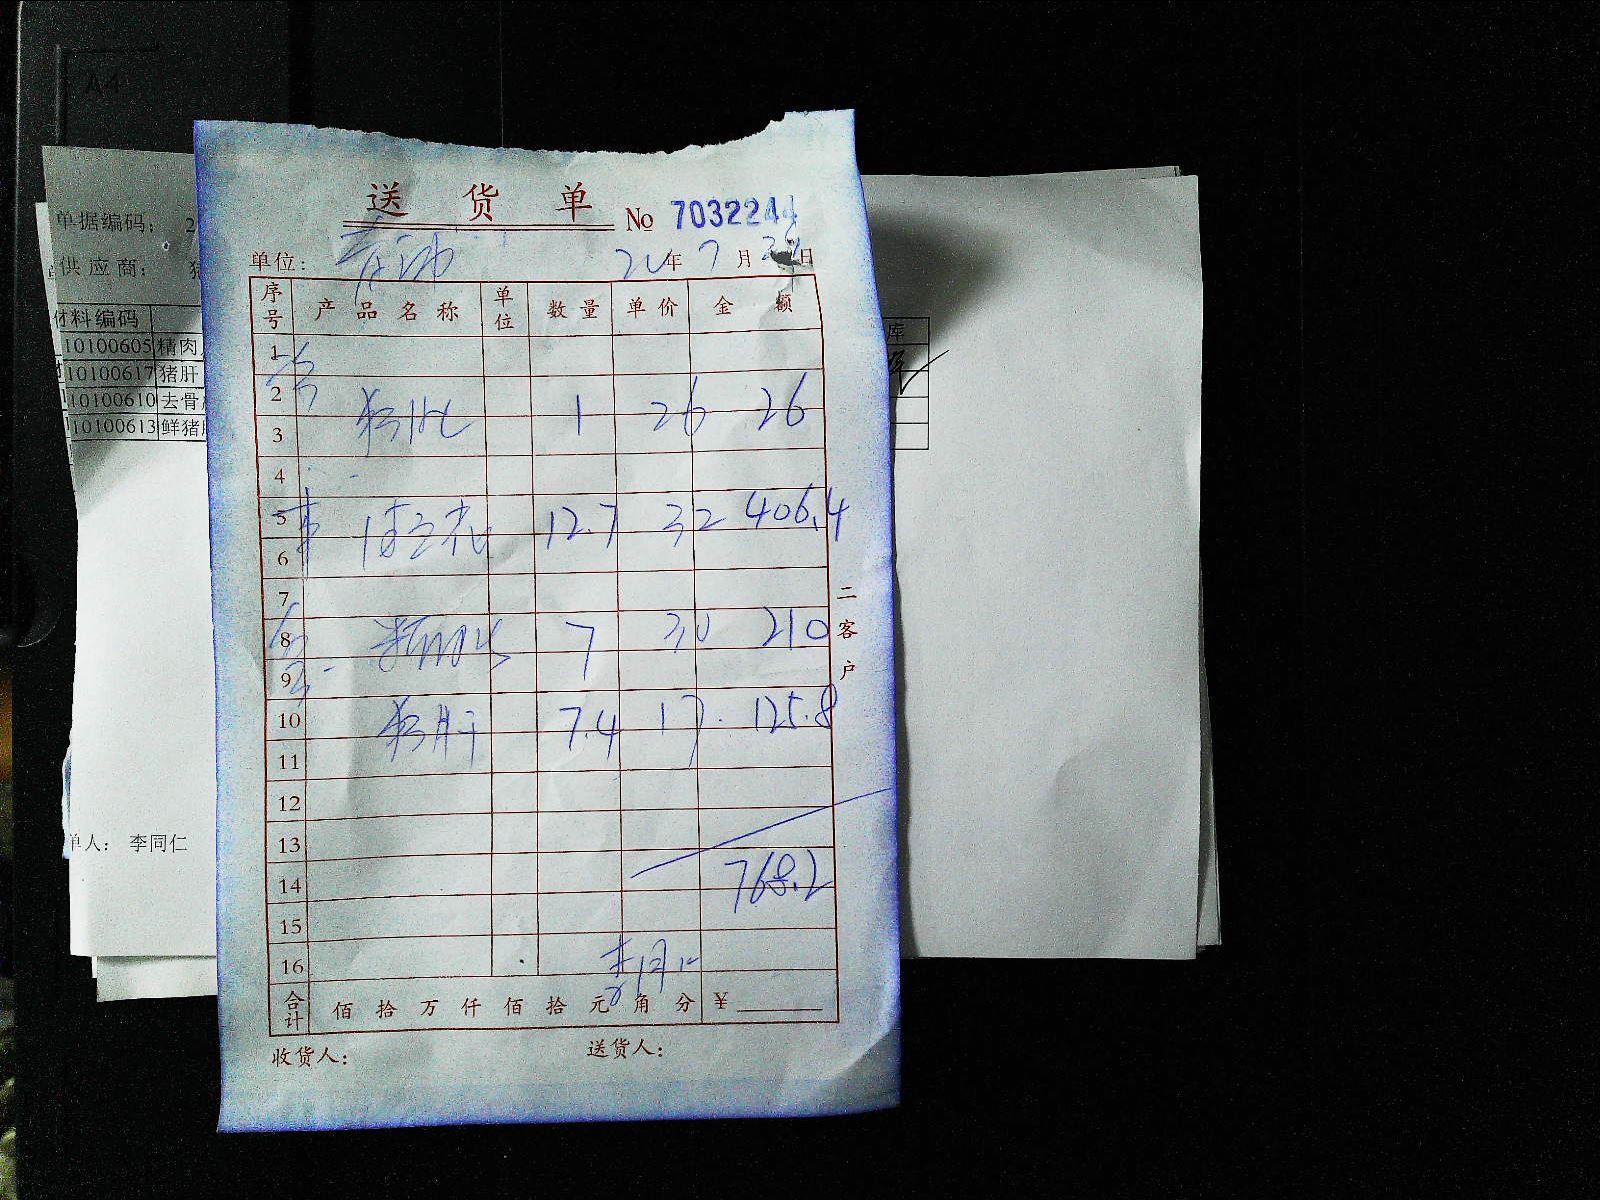 A4
送货单 No 7032244
单位: 20 年 7 月 日
单据编码: 2
供应商: 猪
材料编码
10100605 精肉
10100617 猪肝
10100610 去骨
10100613 鲜猪
库
序号 产品名称 单位 数量 单价 金额
1
2
猪 1 26 26
3
4
5 12.7 32 406.4
6
7
8 7 30 210
9
10 猪肝 7.4 17 125.8
11
12
13
14 768.2
15
16 李同仁
合计 佰 拾 万 仟 佰 拾 元 角 分 ¥
收货人: 送货人:
二客户
单人: 李同仁